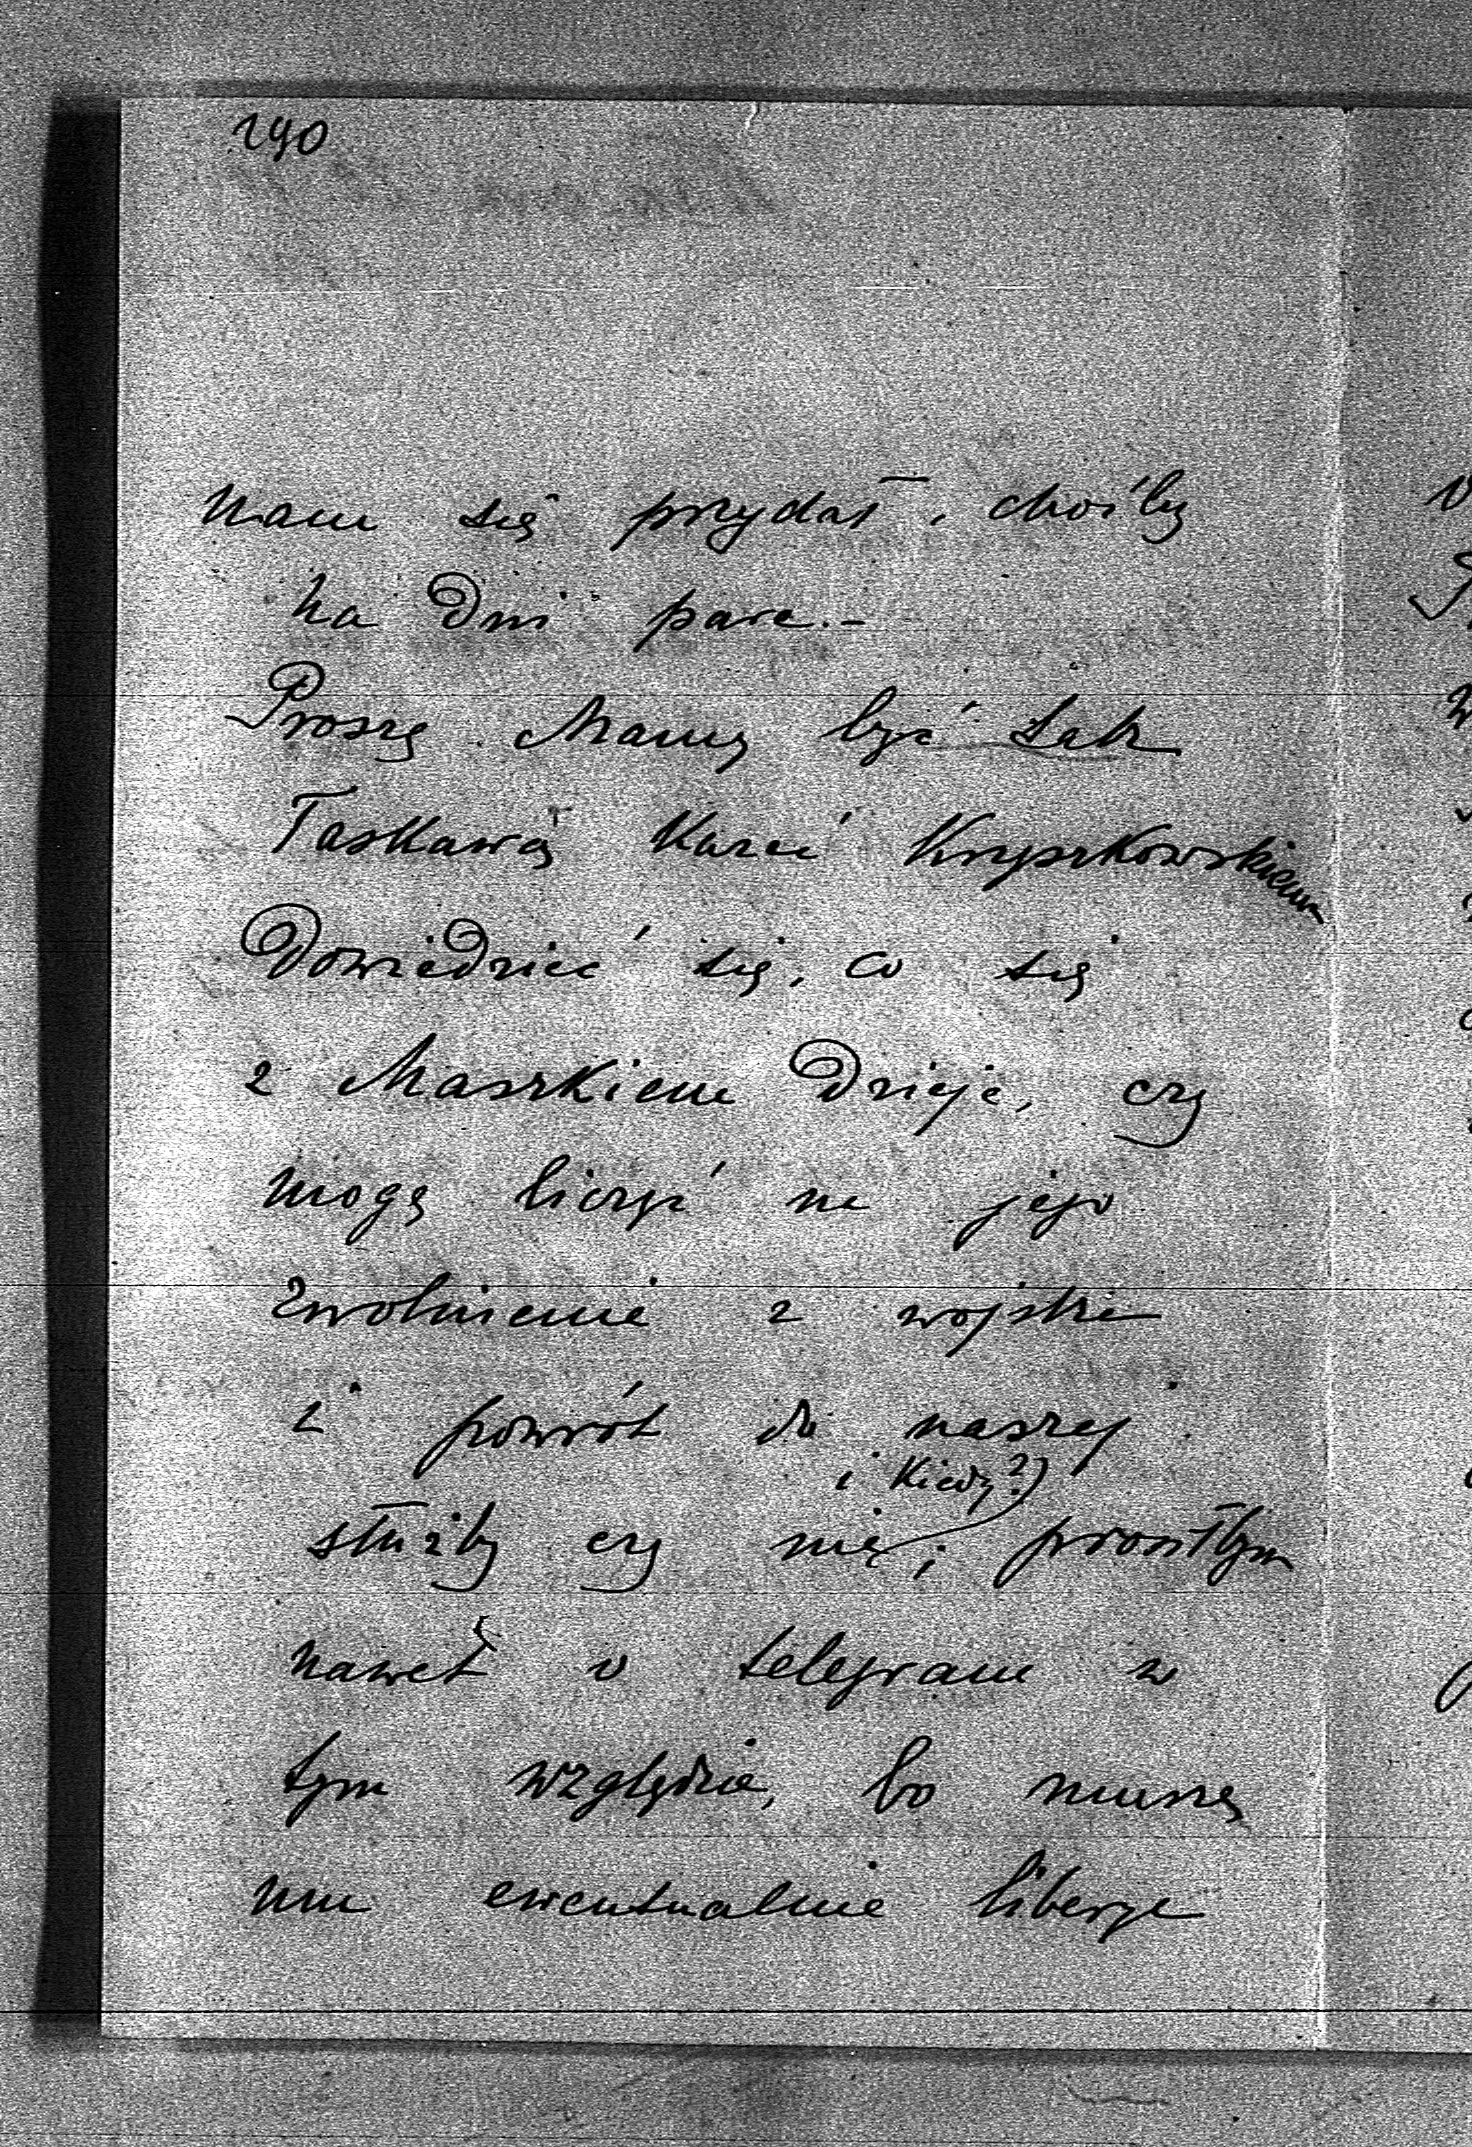 290
nam się przydał, choćby
na dni parę.–
Proszę Mamy być tak
łaskawą kazać Kryszkowskiemu
dowiedzieć się, co się
z Maszkiem dzieje, czy
mogę liczyć na jego
zwolnienie z wojska
i powrót do naszej
i kiedy?)
służby czy nie; prosiłbym
nawet o telegram w
tym względzie, bo muszę
mu ewentualnie liberye